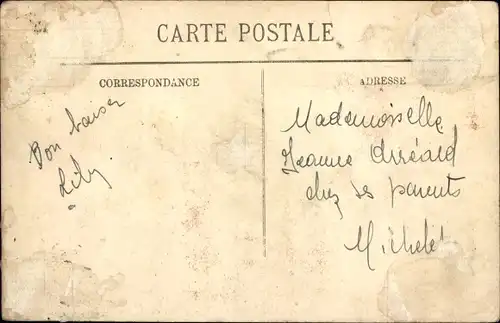 CARTE POSTALE
CORRESPONDANCE
Bon baiser
Lily
ADRESSE
Mademoiselle
Jeanne
chez ses parents
Michelet